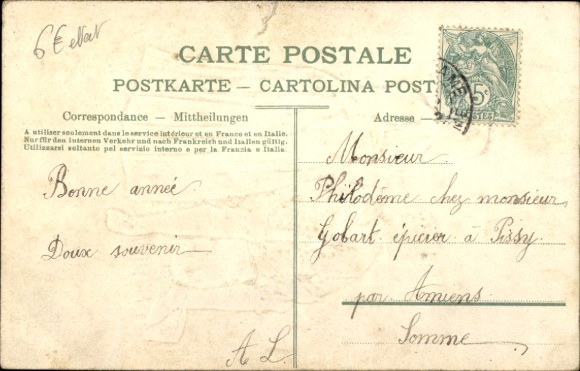 6 € 
CARTE POSTALE
POSTKARTE — CARTOLINA POST
Correspondance — Mittheilungen
Adresse —
A utiliser seulement dans le service intérieur et en France et en Italie.
Nur für den internen Verkehr und nach Frankreich und Italien gültig.
Utilizzarsi soltanto pel servizio interno e per la Franzia e Italia.
5c
POSTES
Bonne année
Doux souvenir
A L
Monsieur
Philodème chez monsieur
Gobart épicier à Pissy
par Amiens
Somme